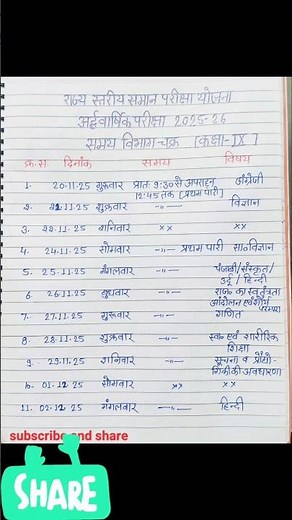 राज्य स्तरीय समान परीक्षा योजना
अर्द्धवार्षिक परीक्षा 2025-26
समय विभाग चक्र [कक्षा-IX]
क्र.स. दिनांक समय विषय
1. 20.11.25 गुरूवार प्रातः 9:30 से अपराह्न 12:45 तक [प्रथम पारी] अंग्रेजी
2. 21.11.25 शुक्रवार —〃— विज्ञान
3. 22.11.25 शनिवार ×× ××
4. 24.11.25 सोमवार —〃— प्रथम पारी सा० विज्ञान
5. 25.11.25 मंगलवार —〃— पंजाबी/संस्कृत/
उर्दू/हिन्दी
6. 26.11.25 बुधवार —〃— राज० का स्वतंत्रता
आंदोलन एवं शौर्य परम्परा
7. 27.11.25 गुरूवार —〃— गणित
8. 28.11.25 शुक्रवार —〃— स्वा० एवं शारीरिक
शिक्षा
9. 29.11.25 शनिवार —〃— सूचना व प्रौद्यो-
गिकी की अवधारणा
10. 01.12.25 सोमवार ×× ××
11. 02.12.25 मंगलवार —〃— हिन्दी
subscribe and share
SHARE